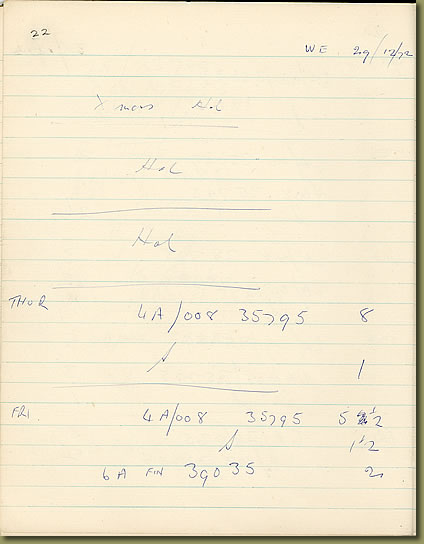 22
WE 29/12/72
Xmas Hol
Hol
Hol
THUR 4A/008 35795 8
1
FRI 4A/008 35795 5 1/2
1 1/2
6A FIN 39035 2